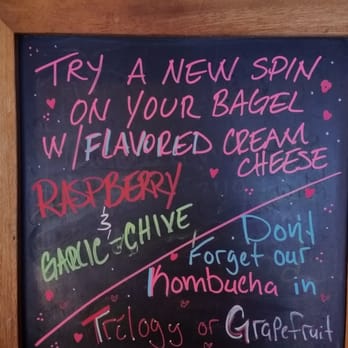 TRY A NEW SPIN
ON YOUR BAGEL
W/FLAVORED CREAM
CHEESE
RASPBERRY
&
GARLIC-CHIVE
Don't
Forget our
Kombucha in
Trilogy or Grapefruit